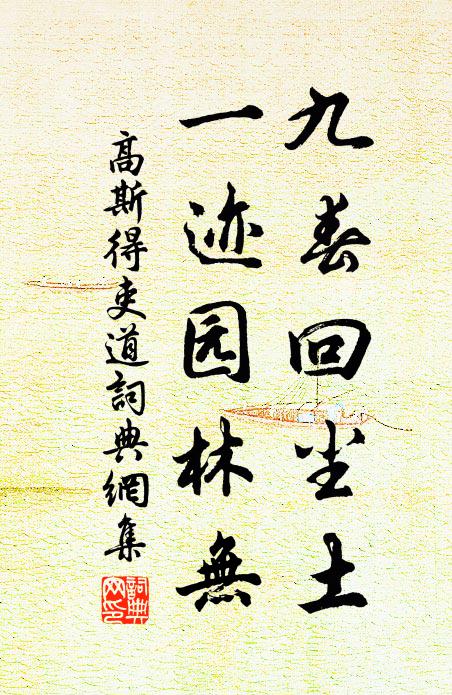 九春回尘土
一迹园林無
高斯得吏道詞典網集
詞典
网印